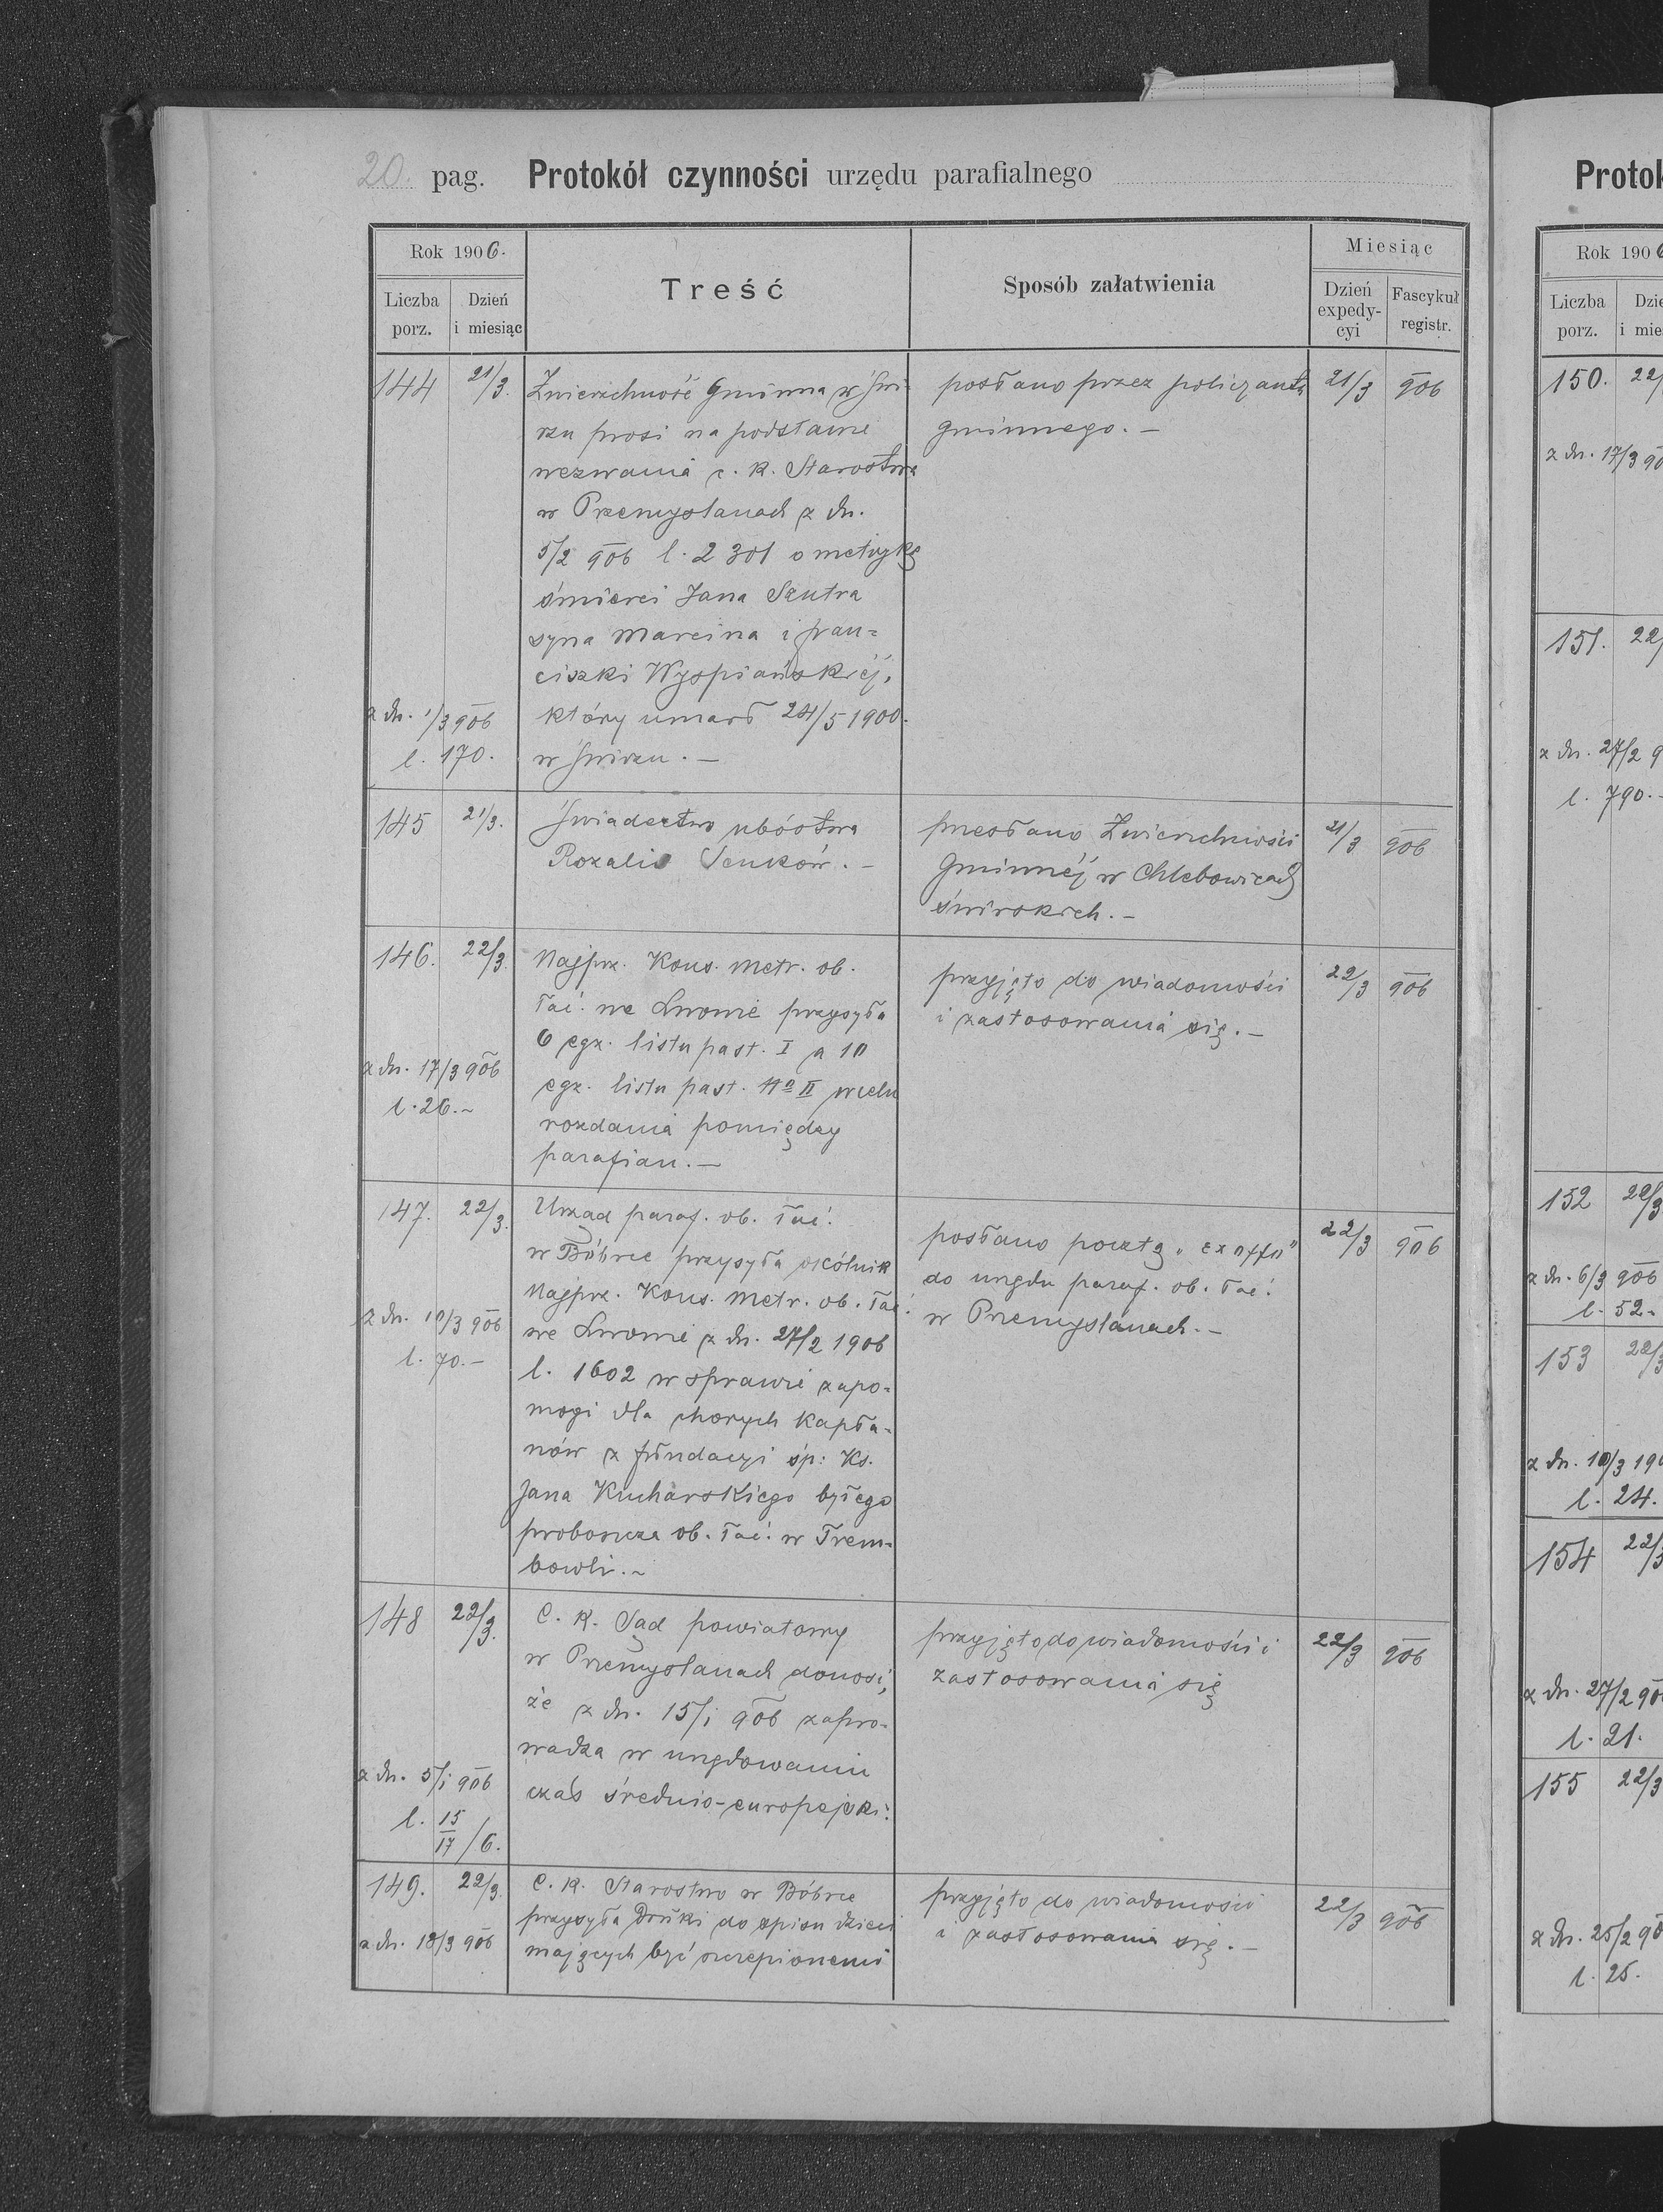 20. pag. Protokół czynności urzędu parafialnego
Rok 1906.
Liczba porz.
Dzień i miesiąc
Treść
Sposób załatwienia
Miesiąc
Dzień expedycyi
Fascykuł registr.
144 21/3. Zwierzchność Gminna w Świ-
rzu prosi na podstawie
wezwania c. k. Starostwa
w Przemyślanach z dn.
5/2 906 l. 2301 o metrykę
śmierci Jana Szutra
syna Marcina i Fran=
ciszki Wyspiańskiéj,
który umarł 24/5 1900.
w Świrzu. —
z dn. 1/3 906
l. 170.
posłano przez policyanta
gminnego. —
21/3 906
145 21/3. Świadectwo ubóstwa
Rozalii Senków. —
przesłano Zwierzchności
Gminnéj w Chlebowicach
świrskich. —
21/3 906
146. 22/3. Najprz. Kons. metr. ob.
łać. we Lwowie przysyła
6 egz. listu past. I a 10
egz. listu past. No II w celu
rozdania pomiędzy
parafian. —
z dn. 17/3 906
l. 26. ~
przyjęto do wiadomości
i zastosowania się. —
22/3 906
147. 22/3. Urząd paraf. ob. łać.
w Bóbrce przysyła okólnik
Najprz. Kons. metr. ob. łać.
we Lwowie z dn. 27/2 1906
l. 1602 w sprawie zapo=
mogi dla chorych kapła=
nów z fundacyi śp: Ks.
Jana Kucharskiego byłego
proboszcza ob. łać. w Trem=
bowli. ~
z dn. 10/3 906
l. 70. —
posłano pocztą „ex offo"
do urzędu paraf. ob. łać.
w Przemyślanach. —
22/3 906
148 22/3. C. k. Sąd powiatowy
w Przemyślanach donosi,
że z dn. 15/1 906 zapro-
wadza w urzędowaniu
czas średnio-europejski.
z dn. 5/1 906
l. 15
17 / 6.
przyjęto do wiadomości i
zastosowania się
22/3 906
149. 22/3. C. k. Starostwo w Bóbrce
przysyła druki do spisu dzieci
mających być szczepionemi
z dn. 18/3 906
przyjęto do wiadomości
i zastosowania się. —
22/3 906
Protok
Rok 1906
Liczba porz.
150. 22/
z dn. 17/3 90
151. 22/
z dn. 27/2 9
l. 790. -
152 22/3
z dn. 6/3 906
l. 52.
153 22/3
z dn. 10/3 190
l. 24.
154 22/3
z dn. 27/2 90
l. 21.
155 22/3
z dn. 25/2 90
l. 25.